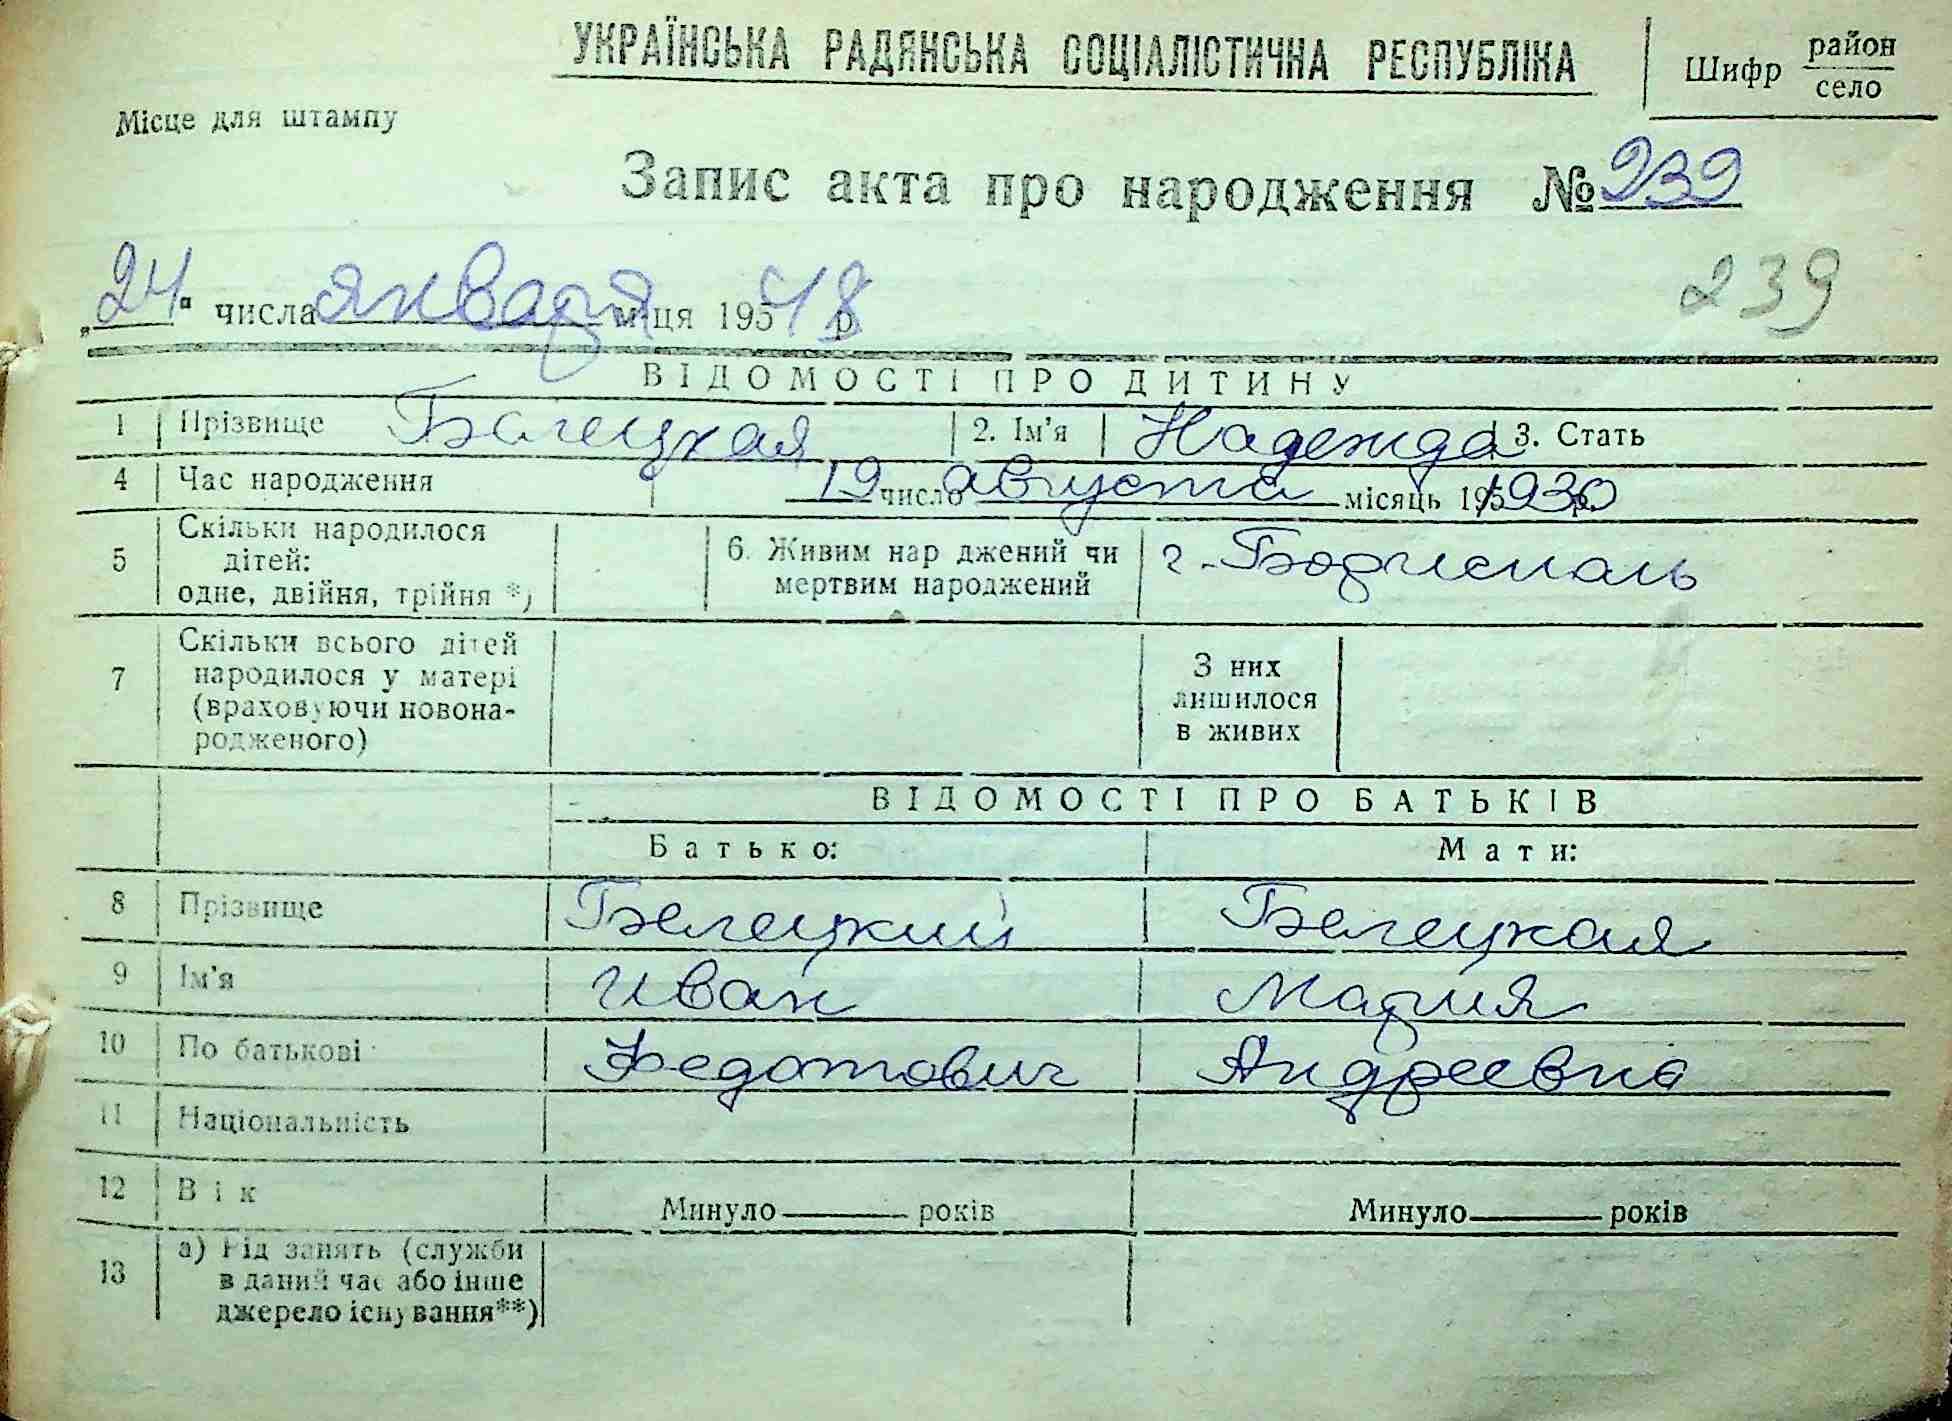 УКРАЇНСЬКА РАДЯНСЬКА СОЦІАЛІСТИЧНА РЕСПУБЛІКА
Шифр район
село
Місце для штампу
Запис акта про народження № 239
239
„24" числа января м-ця 195 48 р.
ВІДОМОСТІ ПРО ДИТИНУ
1 Прізвище Белецкая 2. Ім'я Надежда 3. Стать
4 Час народження 19 число августа місяць 195 1930 р.
5 Скільки народилося дітей: одне, двійня, трійня *) 6. Живим нар джений чи мертвим народжений г. Борисполь
7 Скільки всього дітей народилося у матері (враховуючи новона-родженого) З них лишилося в живих
ВІДОМОСТІ ПРО БАТЬКІВ
Батько: Мати:
8 Прізвище Белецкий Белецкая
9 Ім'я Иван Мария
10 По батькові Федотович Андреевна
11 Національність
12 Вік Минуло років Минуло років
13 а) Рід занять (служби в даний час або інше джерело існування**)